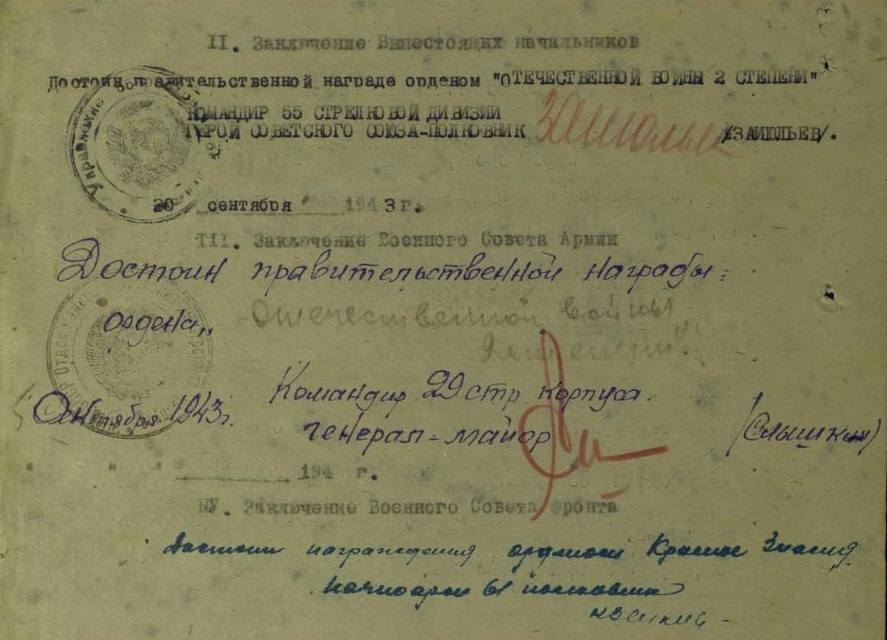 II. Заключение Вышестоящих начальников
Достоин правительственной награде орденом "ОТЕЧЕСТВЕННОЙ ВОЙНЫ 2 СТЕПЕНИ"
КОМАНДИР 55 СТРЕЛКОВОЙ ДИВИЗИИ
ГЕРОЙ СОВЕТСКОГО СОЮЗА-ПОЛКОВНИК /ЗАИЮЛЬЕВ/.
Управление
20 сентября 1943 г.
III. Заключение Военного Совета Армии
Достоин правительственной награды:
ордена „Отечественной войны
степени"
Командир 29 стр корпуса.
Октября 1943г.
генерал-майор (Слышкин)
194 г.
IУ. Заключение Военного Совета Фронта
достоин награждения орденом Красное Знамя
Начподарм 61 полковник